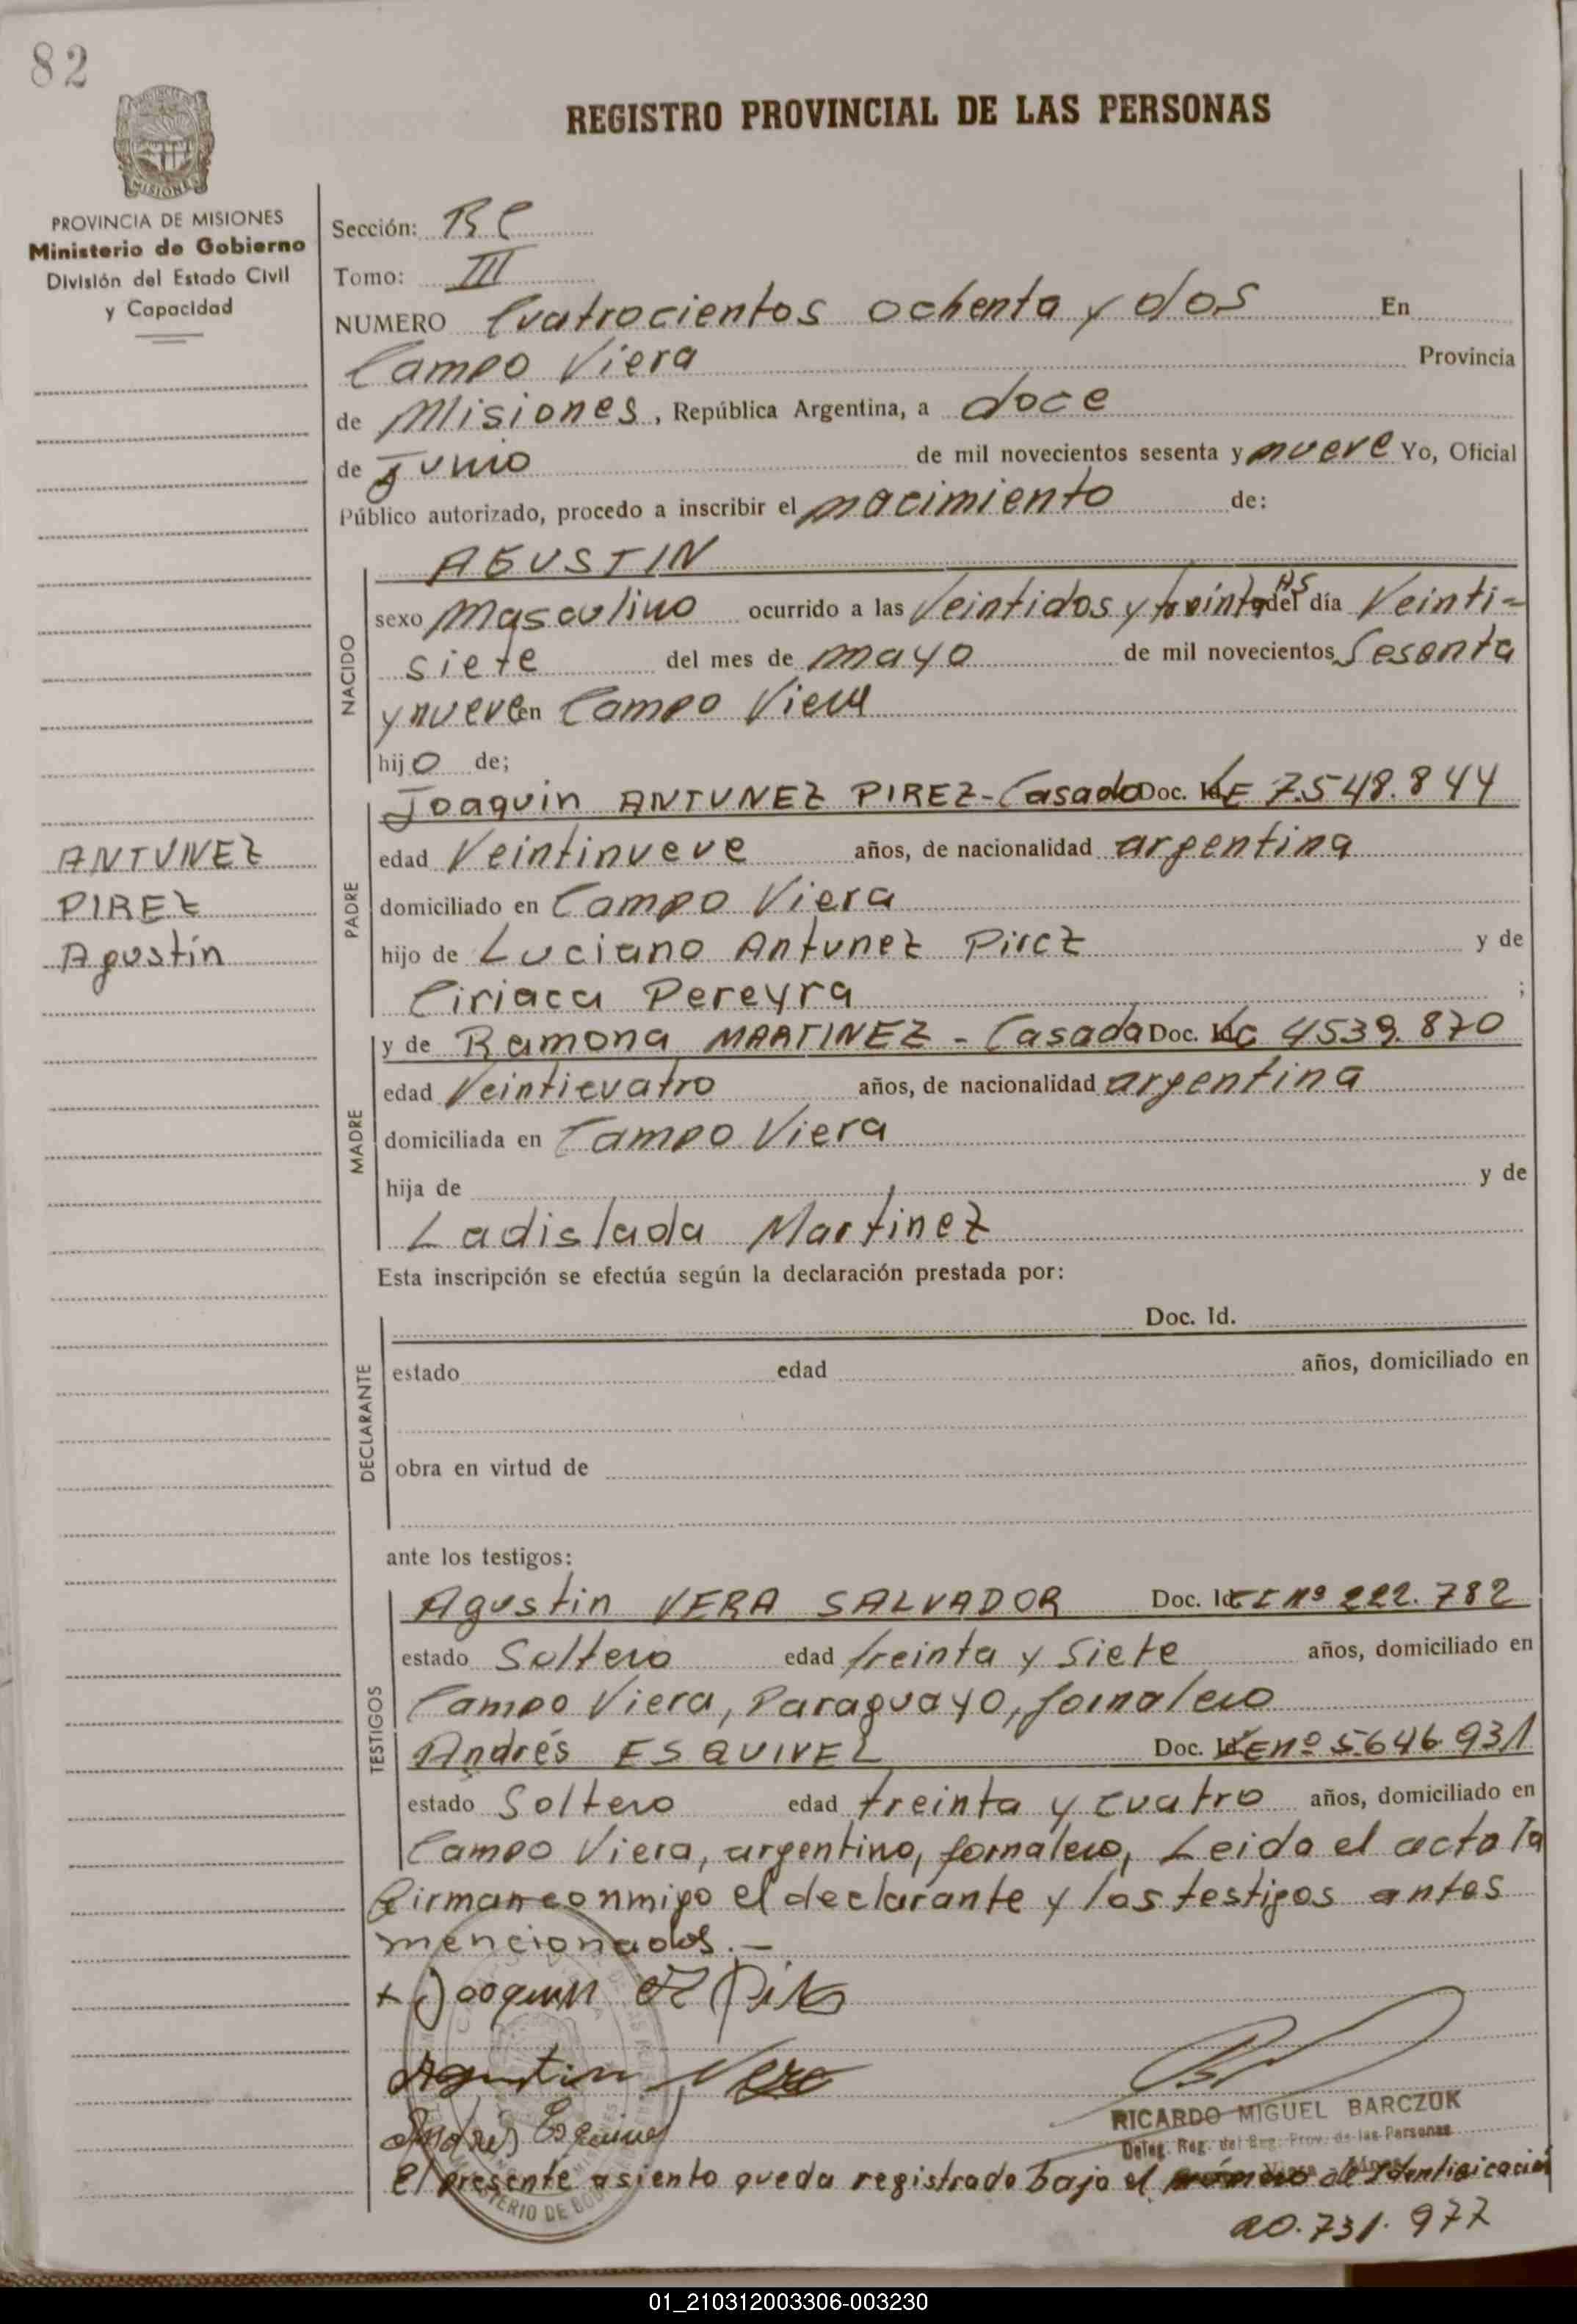 82
REGISTRO PROVINCIAL DE LAS PERSONAS
MISIONES
PROVINCIA DE MISIONES
Ministerio de Gobierno
División del Estado Civil
y Capacidad
Sección: RC
Tomo: III
NUMERO Cuatrocientos ochenta y dos En
Campo Viera Provincia
de Misiones, República Argentina, a doce
de Junio de mil novecientos sesenta y nueve Yo, Oficial
Público autorizado, procedo a inscribir el nacimiento de:
AGUSTIN
NACIDO
sexo Masculino ocurrido a las Veintidos y treinta HS del día Veinti=
siete del mes de mayo de mil novecientos Sesenta
y nueve en Campo Viera
hijo de;
Joaquin ANTUNEZ PIREZ - Casado Doc. Id. LE 7.548.844
PADRE
edad Veintinueve años, de nacionalidad argentina
ANTUNEZ
PIREZ
Agustín
domiciliado en Campo Viera
hijo de Luciano Antunez Pirez y de
Ciriaca Pereyra ;
MADRE
y de Ramona MARTINEZ - Casada Doc. Id. LC 4539.870
edad Veinticuatro años, de nacionalidad argentina
domiciliada en Campo Viera
hija de y de
Ladislada Martinez
Esta inscripción se efectúa según la declaración prestada por:
DECLARANTE
Doc. Id.
estado edad años, domiciliado en
obra en virtud de
ante los testigos:
TESTIGOS
Agustin VERA SALVADOR Doc. Id. CI nº 222.782
estado Soltero edad treinta y siete años, domiciliado en
Campo Viera, Paraguayo, jornalero
Andrés ESQUIVEL Doc. Id. LE nº 5.646.931
estado Soltero edad treinta y cuatro años, domiciliado en
Campo Viera, argentino, jornalero, Leida el acta la
firman conmigo el declarante y los testigos antes
mencionados.-
+ Joaquin Pirez
Agustin Vera
Andres Esquivel
RICARDO MIGUEL BARCZUK
Deleg. Reg. del Reg. Prov. de las Personas
El presente asiento queda registrado bajo el número de Identificación
20.731.977
01_210312003306-003230